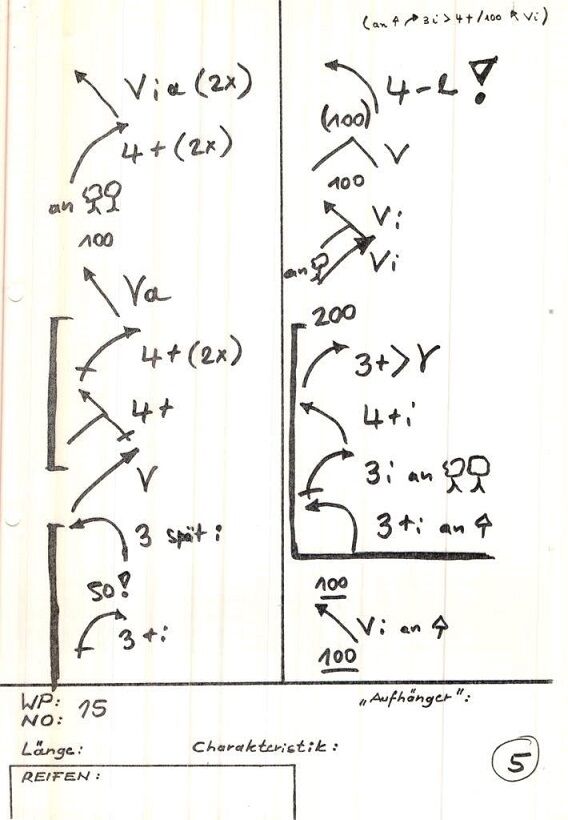 (an ↑ ↗ 3i > 4+/100 ↖ Vi)
Via (2x)
4+ (2x)
an
100
Va
4+ (2x)
4+
V
3 spät i
50!
3+i
4-2 !
(100)
V
100
Vi
an
Vi
200
3+>Y
4+i
3i an
3+i an ↑
100
Vi an ↑
100
WP:
NO: 15
„Aufhänger":
Länge:
Charakteristik:
5
REIFEN: